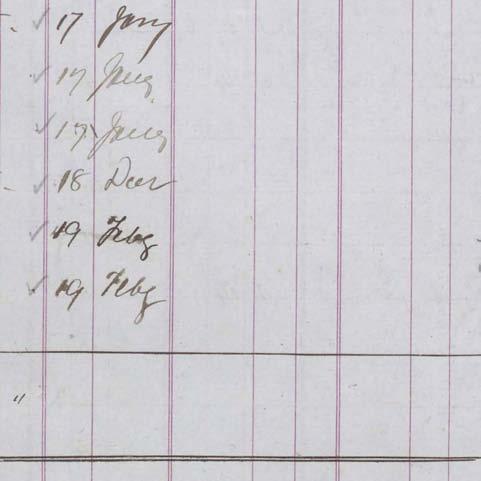 ✓ 17 Jany
✓ 17 Jany
✓ 17 Jany
✓ 18 Decr
✓ 19 Feby
✓ 19 Feby
"